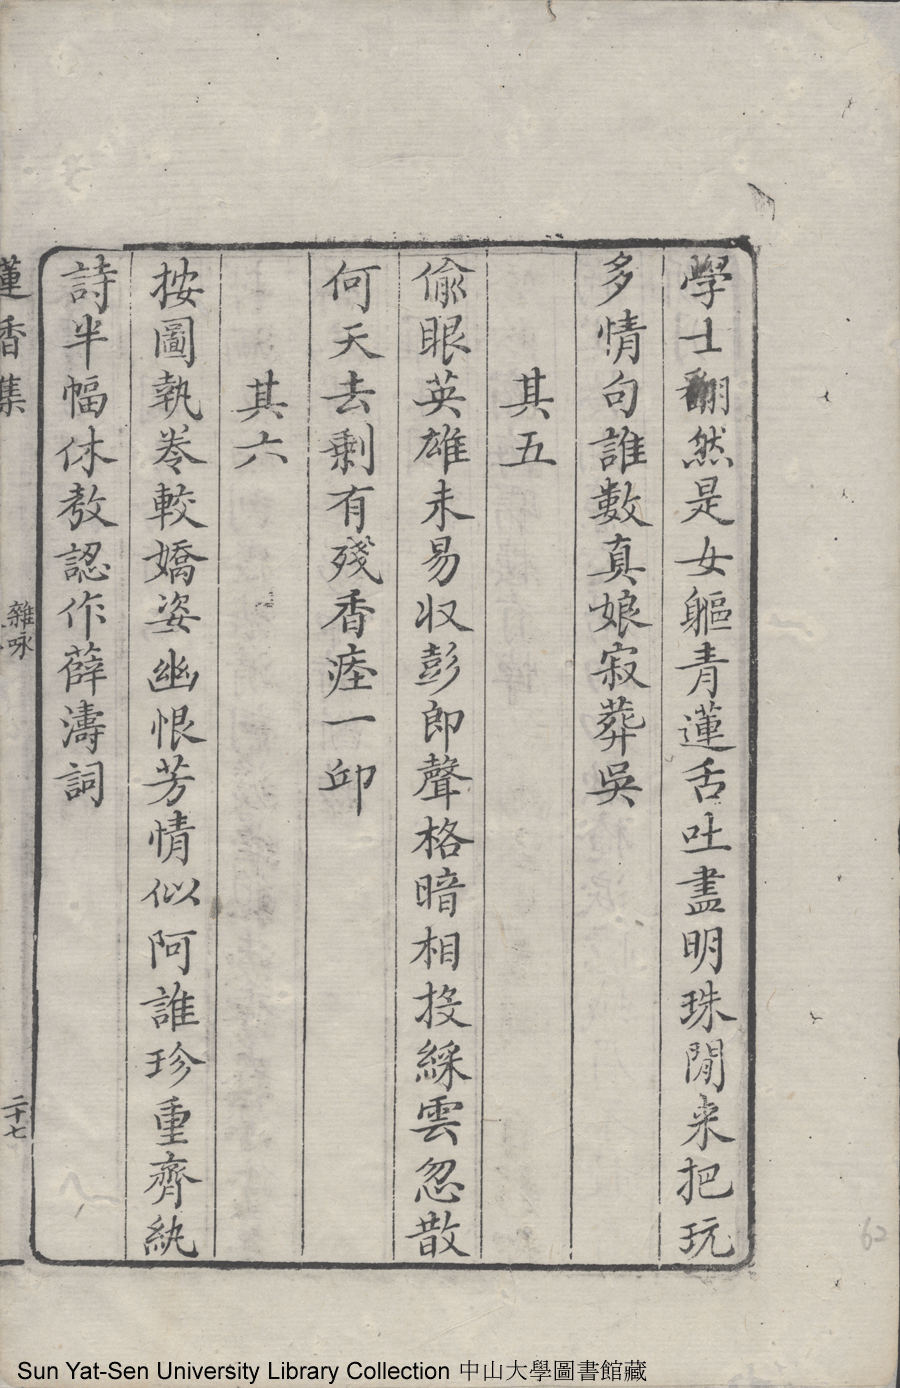 學士翻然是女軀青蓮舌吐盡明珠閒来把玩
多情句誰數真娘寂葬吳
其五
偷眼英雄未易収彭郎聲格暗相投綵雲忽散
何天去剩有殘香瘞一邱
其六
按圖執卷較嬌姿幽恨芳情似阿誰珍重齊紈
詩半幅休教認作薛濤詞
蓮香集
雜咏
二十七
62
Sun Yat-Sen University Library Collection 中山大學圖書館藏